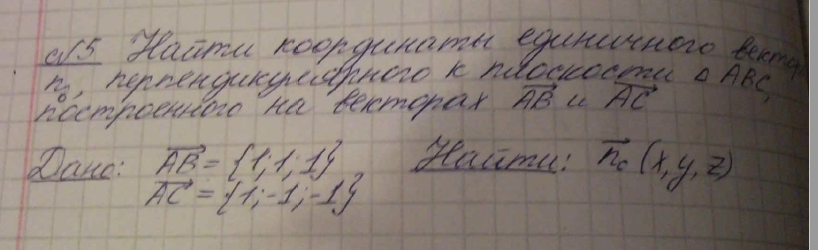 №5 Найти координаты единичного вектора
n₀, перпендикулярного к плоскости △ ABC,
построенного на векторах AB и AC
Дано: AB = {1; 1; 1} Найти: n₀ (x, y, z)
AC = {1; -1; -1}